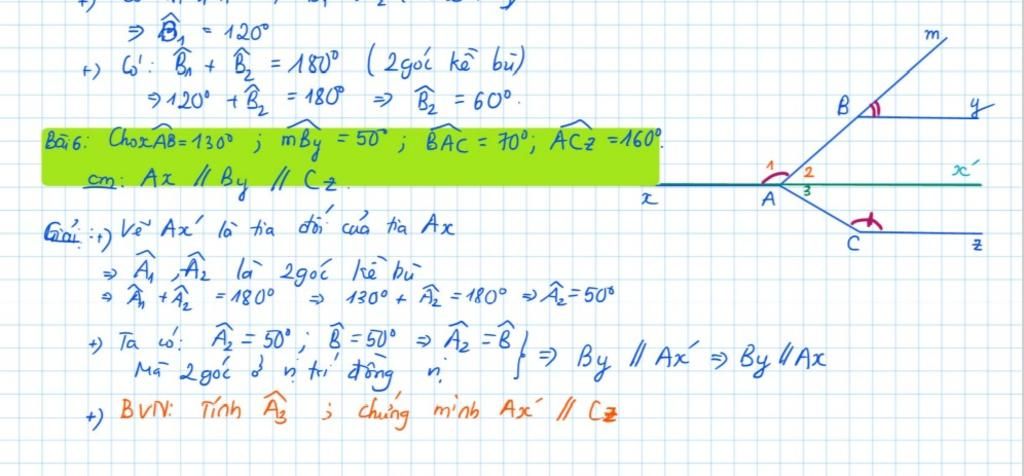 ⇒ B̂₁ = 120°
+) Có: B̂₁ + B̂₂ = 180° (2 góc kề bù)
⇒ 120° + B̂₂ = 180° ⇒ B̂₂ = 60°.
Bài 6: Cho xAB = 130° ; mBy = 50° ; BAC = 70° ; ACz = 160°.
cm: Ax // By // Cz.
Giải: +) Vẽ Ax' là tia đối của tia Ax
⇒ Â₁, Â₂ là 2 góc kề bù
⇒ Â₁ + Â₂ = 180° ⇒ 130° + Â₂ = 180° ⇒ Â₂ = 50°
+) Ta có: Â₂ = 50° ; B̂ = 50° ⇒ Â₂ = B̂
Mà 2 góc ở vị trí đồng vị
} ⇒ By // Ax' ⇒ By // Ax
+) BVN: Tính Â₃ ; chứng minh Ax' // Cz
m
B
y
1
2
x'
x
A
3
C
z